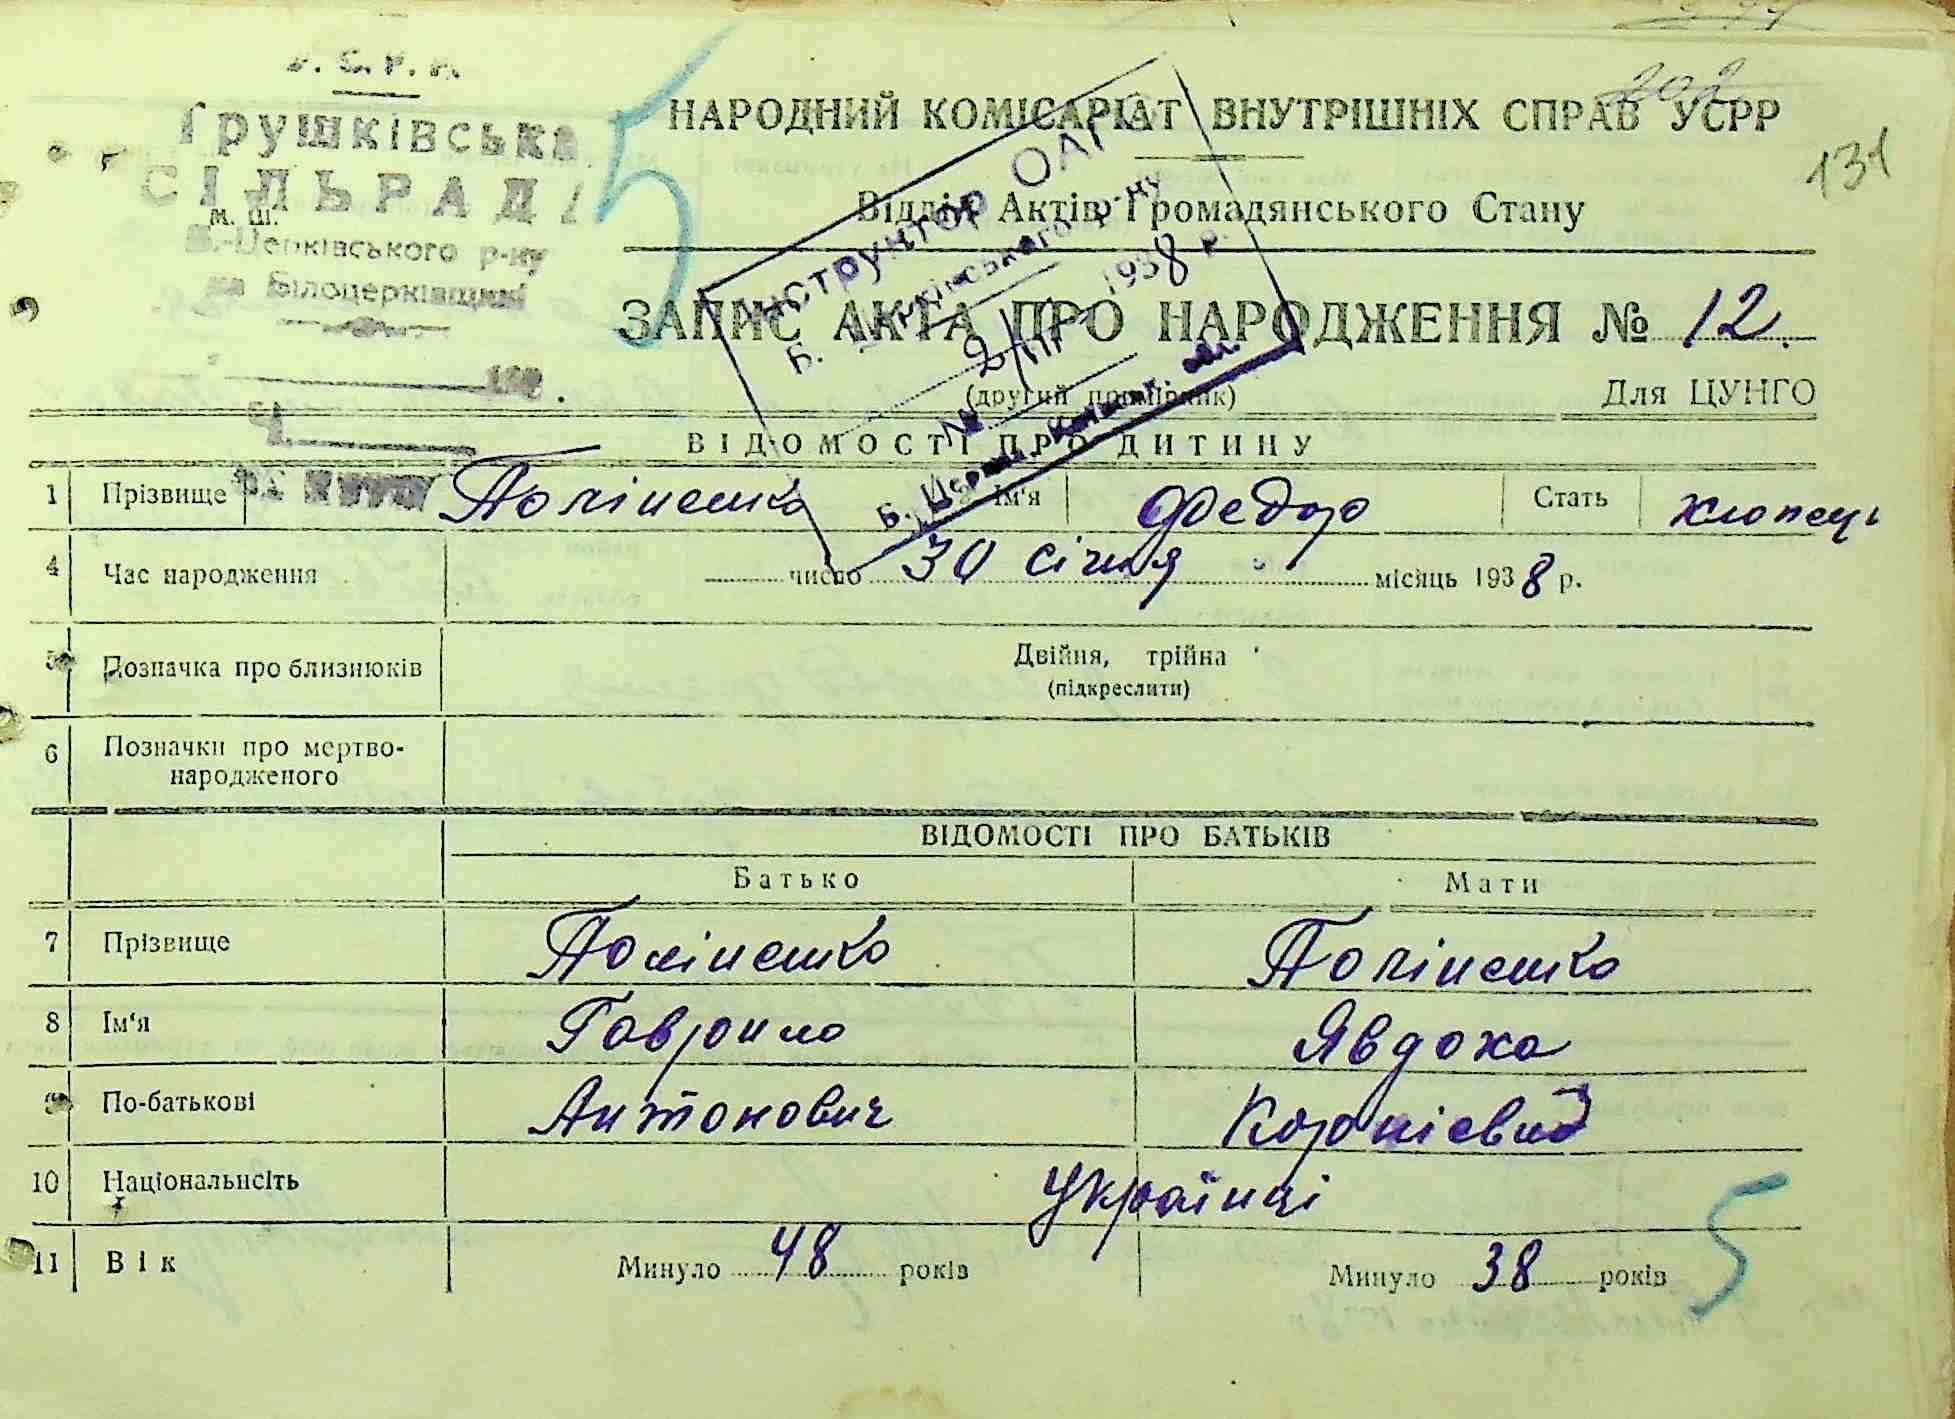 У. С. Р. Р.
Грушківська
СІЛЬРАДА
м. ш.
Б.-Церківського р-ну
на Білоцерківщині
Ч.
202
131
5
НАРОДНИЙ КОМІСАРІАТ ВНУТРІШНІХ СПРАВ УСРР
Відділ Актів Громадянського Стану
ЗАПИС АКТА ПРО НАРОДЖЕННЯ № 12.
(другий примірник)
Для ЦУНГО
Інструктор ОАГС
Б. Церківського р-ну
2/III 1938 р.
№
Б. Церква, Київськ. обл.
ВІДОМОСТІ ПРО ДИТИНУ
1 Прізвище Поліненко Ім'я Федор Стать хлопець
4 Час народження число 30 січня місяць 1938 р.
5 Позначка про близнюків Двійня, трійна
(підкреслити)
6 Позначки про мертво-
народженого
ВІДОМОСТІ ПРО БАТЬКІВ
Батько Мати
7 Прізвище Поліненко Поліненко
8 Ім'я Гаврило Явдоха
9 По-батькові Антонович
10 Національнсіть Українці
11 Вік Минуло 48 років Минуло 38 років
5